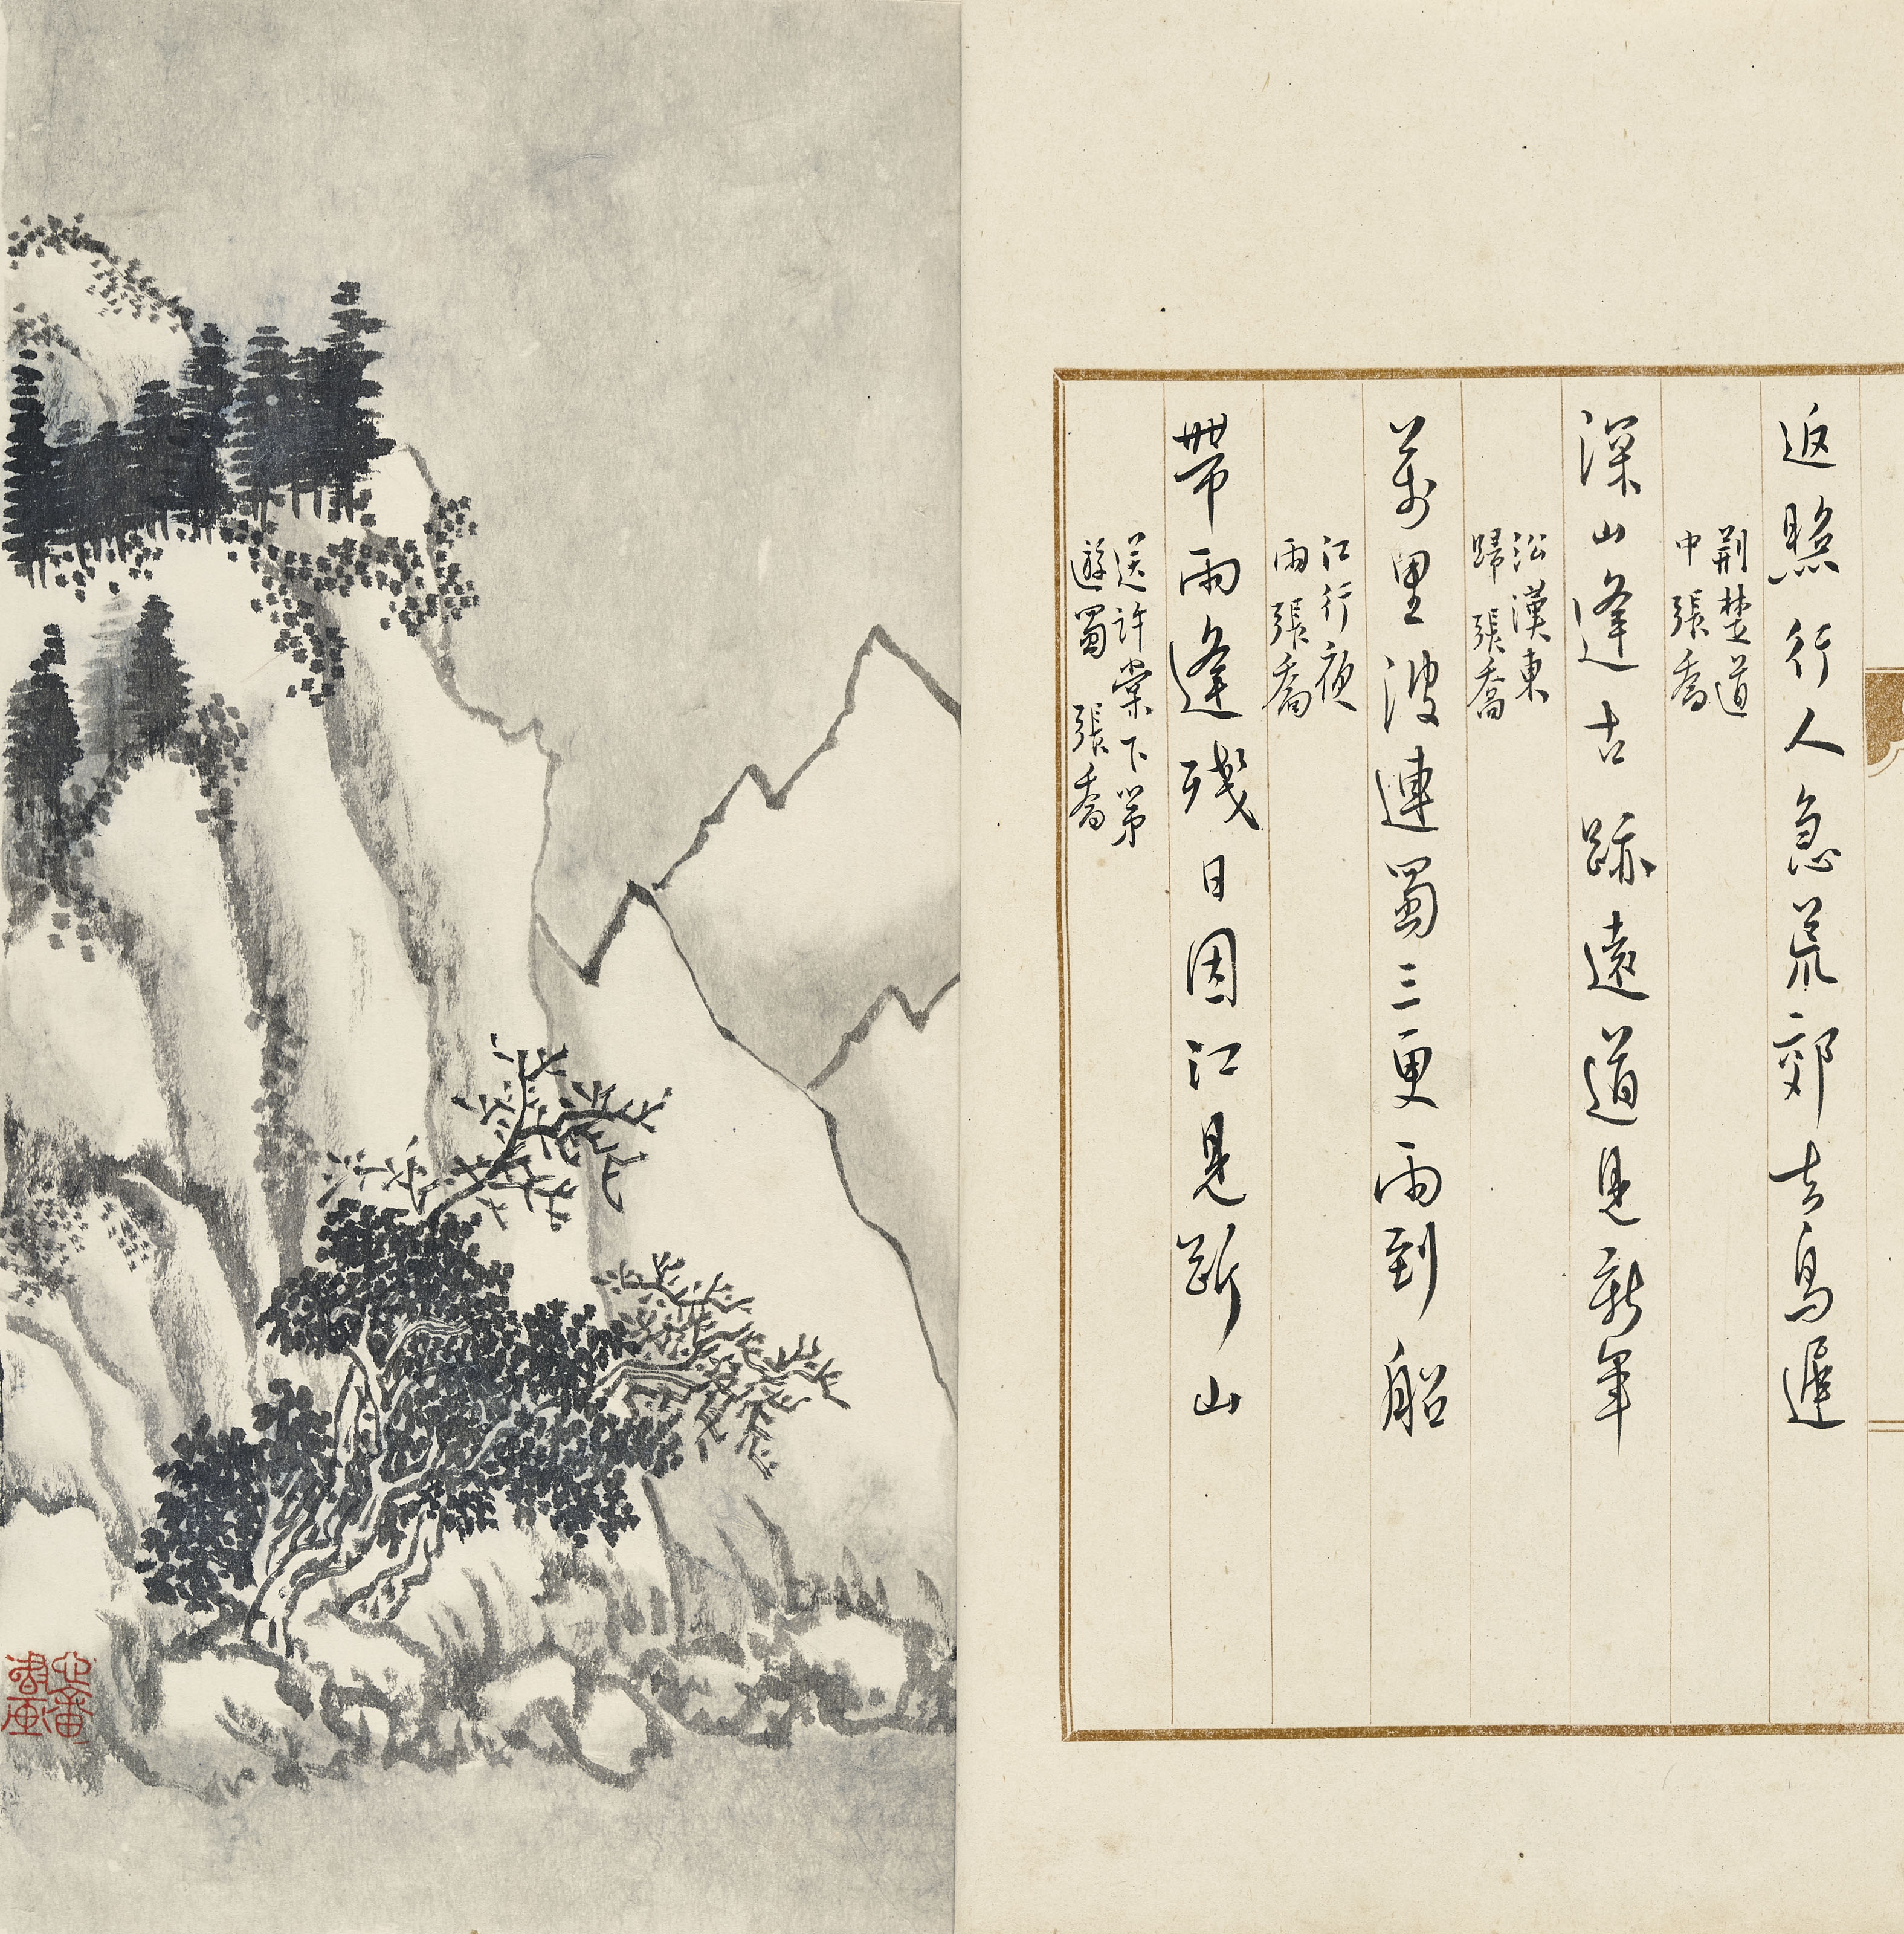 返照行人急荒郊去鳥遲
荆楚道
中 張喬
深山逢古跡遠道見新年
沿漢東
歸 張喬
萬里波連蜀三更雨到船
江行夜
雨 張喬
帶雨逢殘日因江見斷山
送許棠下第
遊蜀 張喬
心畬
書画